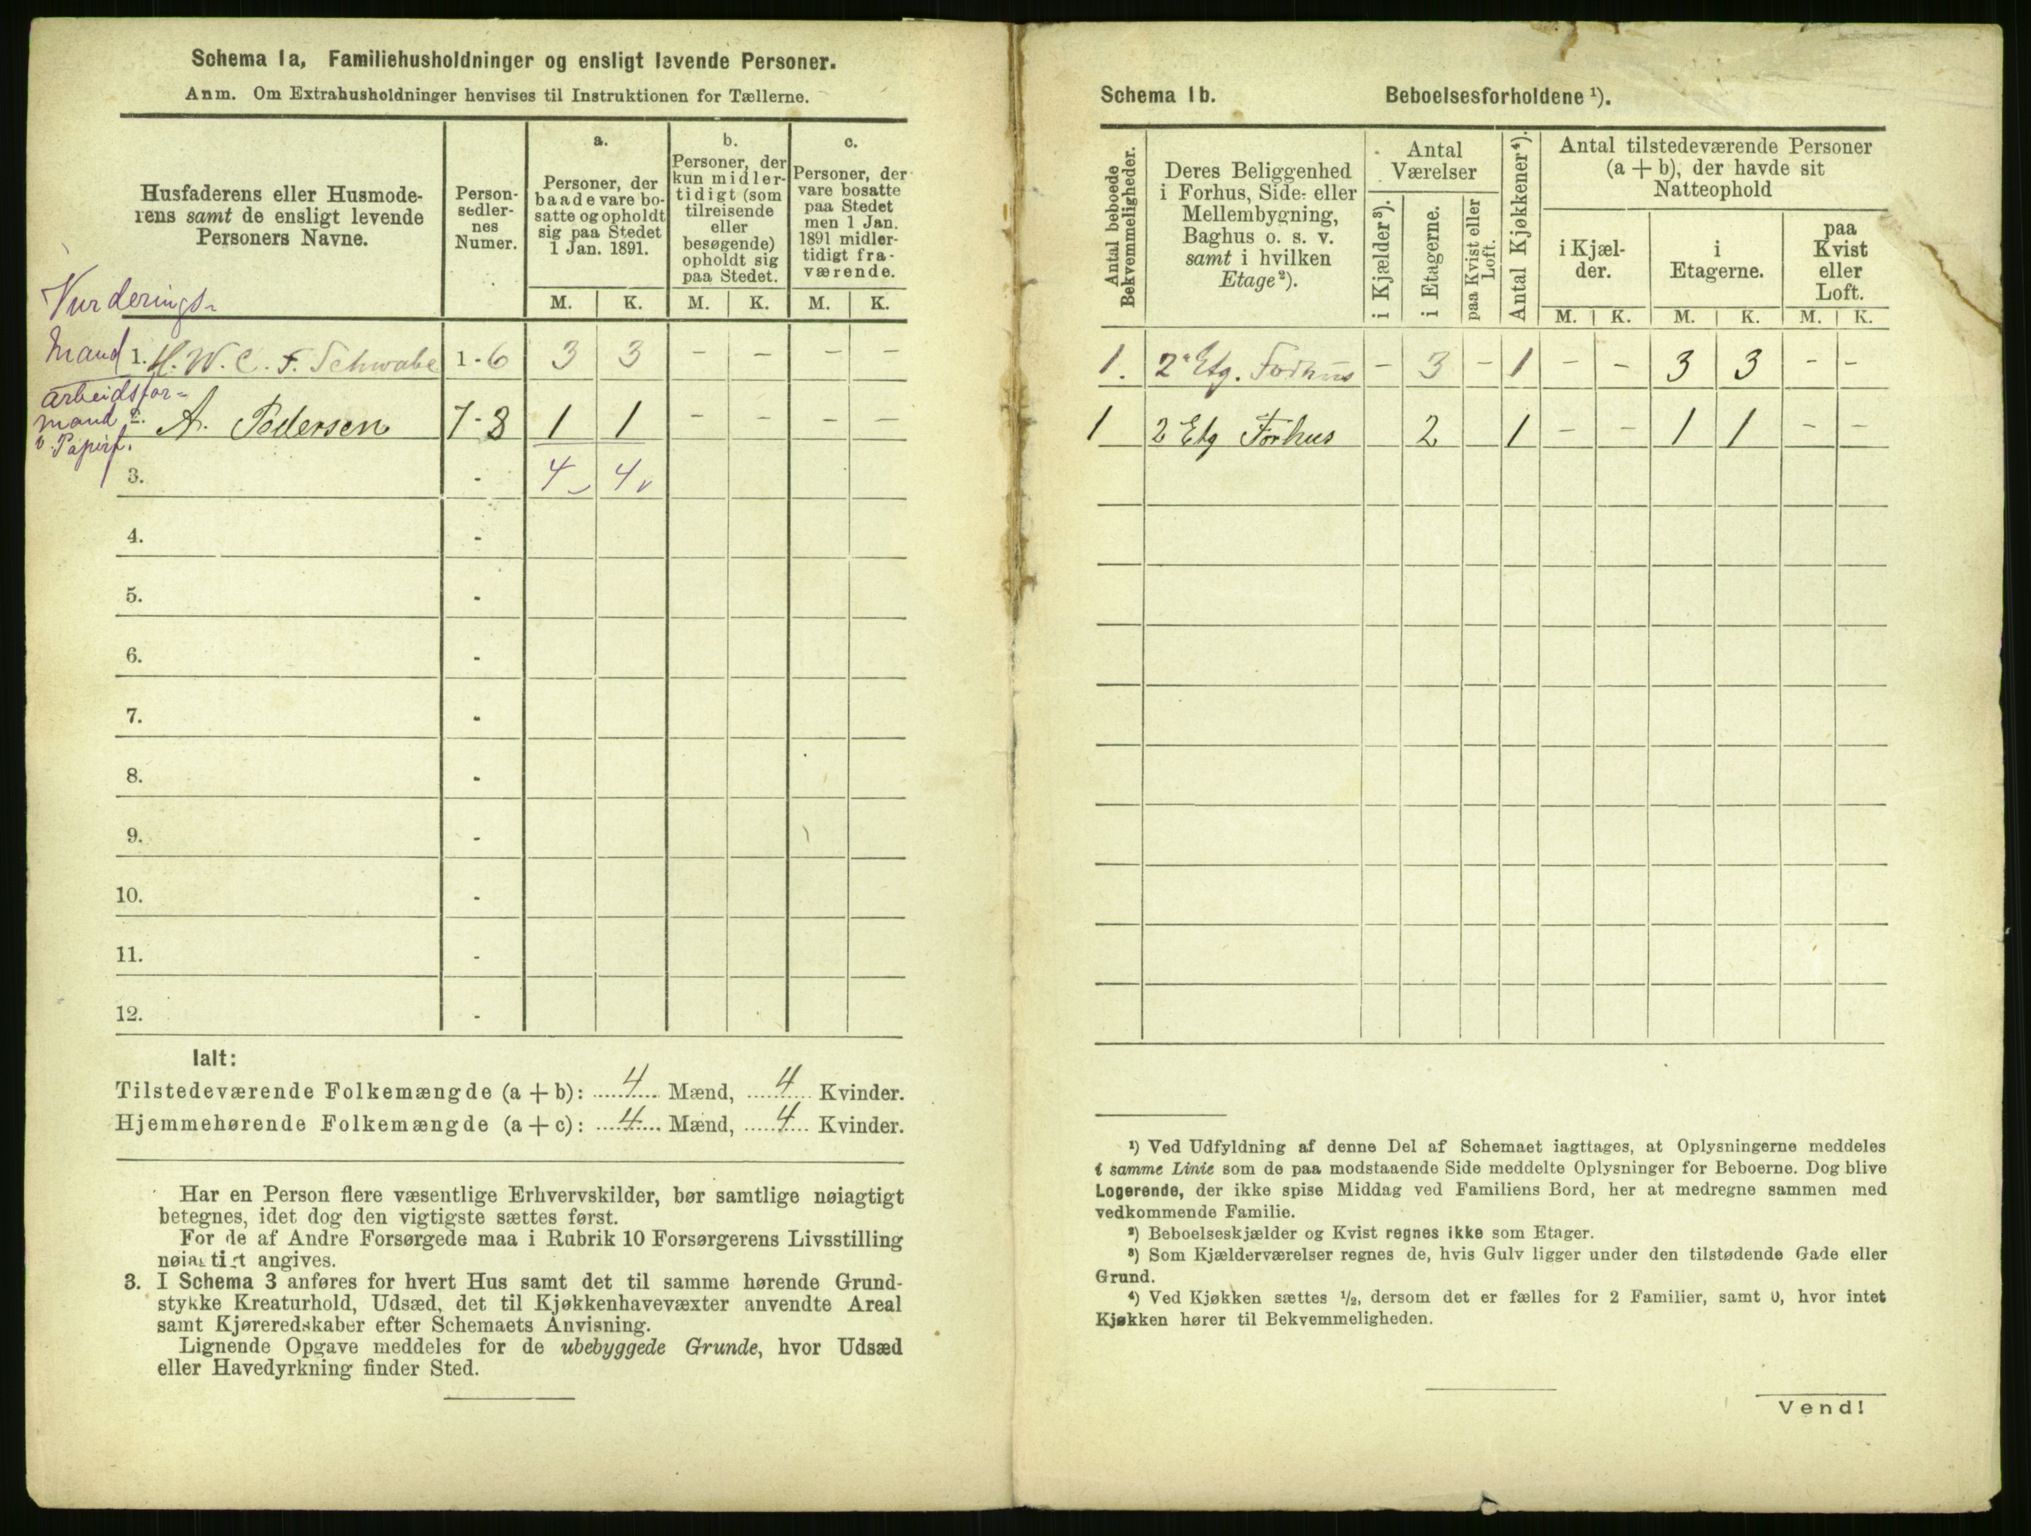 Schema 1a, Familiehusholdninger og ensligt levende Personer.
Anm. Om Extrahusholdninger henvises til Instruktionen for Tællerne.
Husfaderens eller Husmode-
rens samt de ensligt levende
Personers Navne.
Person-
sedler-
nes
Numer.
a.
Personer, der
baade vare bo-
satte og opholdt
sig paa Stedet
1 Jan. 1891.
b.
Personer, der
kun midler-
tidigt (som
tilreisende
eller
besøgende)
opholdt sig
paa Stedet.
c.
Personer, der
vare bosatte
paa Stedet
men 1 Jan.
1891 midler-
tidigt fra-
værende.
M. K. M. K. M. K.
Vurderings-
mand
1. H. W. C. F. Schwabe 1-6 3 3 - - - -
arbeidsfor-
mand
v. Papirf.
2. A. Pedersen 7-8 1 1 - - - -
3. - 4 4
4. -
5. -
6. -
7. -
8. -
9. -
10. -
11. -
12. -
Ialt:
Tilstedeværende Folkemængde (a + b): 4 Mænd, 4 Kvinder.
Hjemmehørende Folkemængde (a + c): 4 Mænd, 4 Kvinder.
Har en Person flere væsentlige Erhvervskilder, bør samtlige nøiagtigt
betegnes, idet dog den vigtigste sættes først.
For de af Andre Forsørgede maa i Rubrik 10 Forsørgerens Livsstilling
nøiagtigt angives.
3. I Schema 3 anføres for hvert Hus samt det til samme hørende Grund-
stykke Kreaturhold, Udsæd, det til Kjøkkenhavevæxter anvendte Areal
samt Kjøreredskaber efter Schemaets Anvisning.
Lignende Opgave meddeles for de ubebyggede Grunde, hvor Udsæd
eller Havedyrkning finder Sted.
Schema 1b. Beboelsesforholdene ¹).
Antal beboede
Bekvemmeligheder.
Deres Beliggenhed
i Forhus, Side- eller
Mellembygning,
Baghus o. s. v.
samt i hvilken
Etage ²).
Antal
Værelser
i Kjælder ³).
i Etagerne.
paa Kvist eller
Loft.
Antal Kjøkkener ⁴).
Antal tilstedeværende Personer
(a + b), der havde sit
Natteophold
i Kjæl-
der.
i
Etagerne.
paa
Kvist
eller
Loft.
M. K. M. K. M. K.
1. 2 Etg. Forhus - 3 - 1 - - 3 3 - -
1 2 Etg Forhus 2 1 - - 1 1 - -
¹) Ved Udfyldning af denne Del af Schemaet iagttages, at Oplysningerne meddeles
i samme Linie som de paa modstaaende Side meddelte Oplysninger for Beboerne. Dog blive
Logerende, der ikke spise Middag ved Familiens Bord, her at medregne sammen med
vedkommende Familie.
²) Beboelseskjælder og Kvist regnes ikke som Etager.
³) Som Kjælderværelser regnes de, hvis Gulv ligger under den tilstødende Gade eller
Grund.
⁴) Ved Kjøkken sættes ½, dersom det er fælles for 2 Familier, samt 0, hvor intet
Kjøkken hører til Bekvemmeligheden.
Vend!